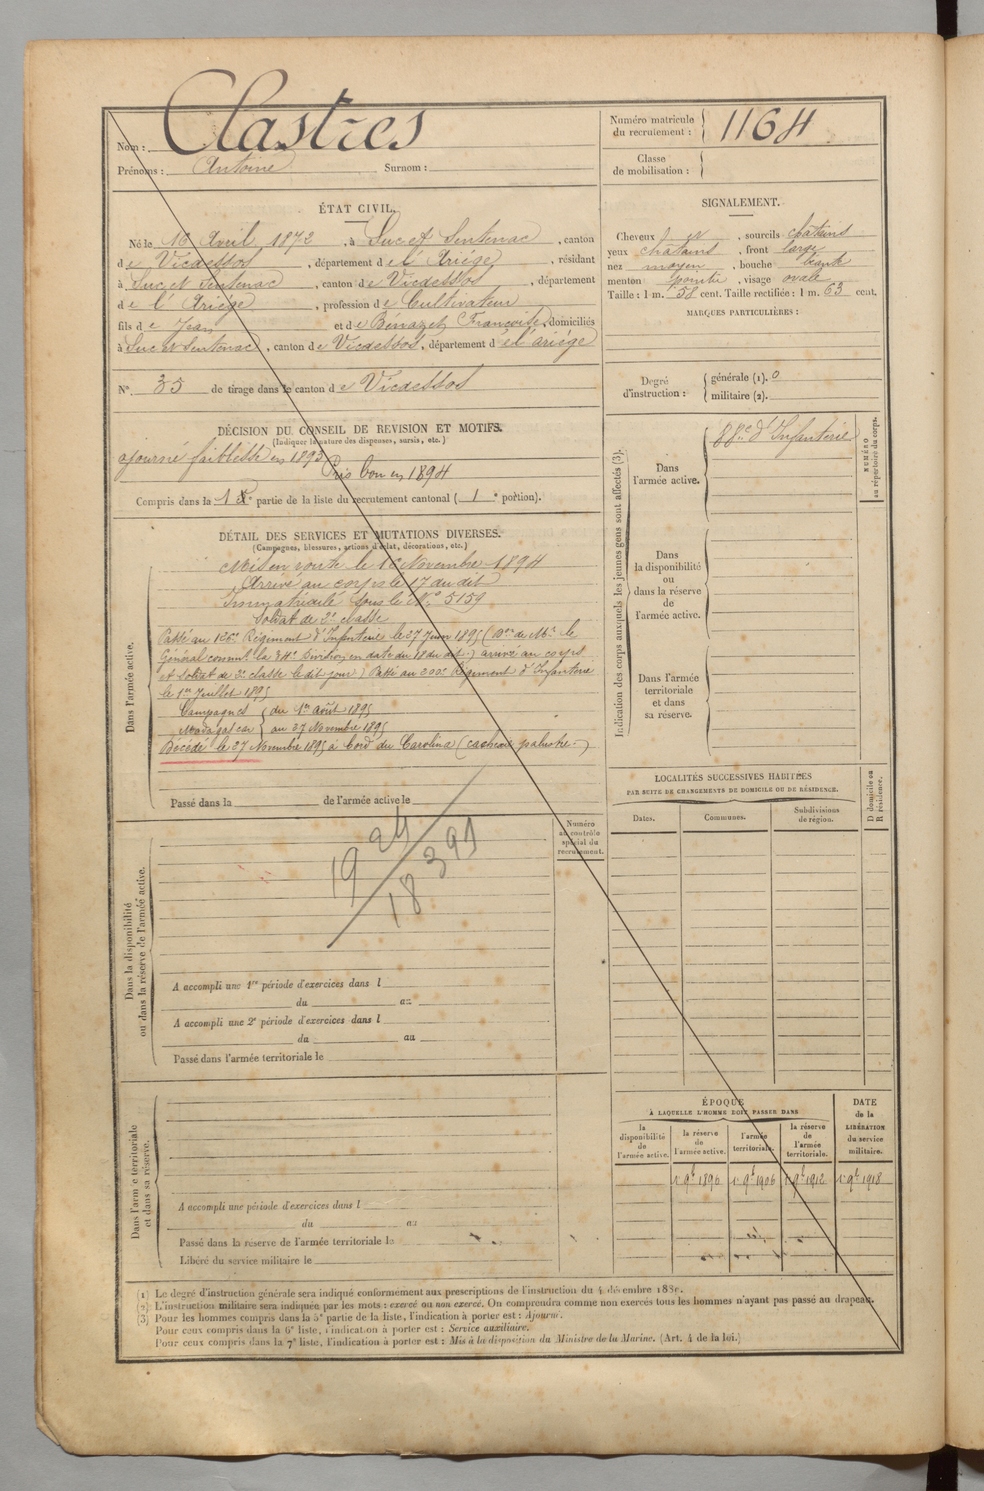 Nom : Clastres
Prénoms : Antoine Surnom :
Numéro matricule du recrutement : 1164
Classe de mobilisation :
ÉTAT CIVIL.
Né le 16 Avril 1872, à Suc et Sentenac, canton
de Vicdessos, département de l'Ariège, résidant
à Suc et Sentenac, canton de Vicdessos, département
de l'Ariège, profession de Cultivateur
fils de Jean et de Bénazet Françoise, domiciliés
à Suc et Sentenac, canton de Vicdessos, département de l'ariège
N° 35 de tirage dans le canton de Vicdessos
SIGNALEMENT.
Cheveux, sourcils chatains
yeux chatains, front large
nez moyen, bouche
menton pointu, visage ovale
Taille : 1 m. 58 cent. Taille rectifiée : 1 m. 63 cent.
MARQUES PARTICULIÈRES :
Degré d'instruction : générale (1). 0
militaire (2).
DÉCISION DU CONSEIL DE REVISION ET MOTIFS.
(Indiquer la nature des dispenses, sursis, etc.)
ajourné faiblesse en 1893
Pris bon en 1894
Compris dans la 1e partie de la liste du recrutement cantonal ( 1e portion).
DÉTAIL DES SERVICES ET MUTATIONS DIVERSES.
(Campagnes, blessures, actions d'éclat, décorations, etc.)
Dans l'armée active.
Mis en route le 16 Novembre 1894
Arrivé au corps le 17 du dit
Immatriculé sous le N° 5159
Soldat de 2e classe
Passé au 126e Régiment d'Infanterie le 27 Juin 1895 (Don de Mr le
Général command. la 34e Division en date du 18 du dit) arrivé au corps
et soldat de 2e classe le dit jour) Passé au 200e Régiment d'Infanterie
le 1er Juillet 1895
Campagnes du 1er août 1895
Madagascar au 27 Novembre 1895
Décédé le 27 Novembre 1895 à bord du Carolina (cachexie palustre.)
Passé dans la de l'armée active le
Indication des corps auxquels les jeunes gens sont affectés (3).
Dans l'armée active.
88e d'Infanterie
NUMÉRO au répertoire du corps.
Dans la disponibilité ou dans la réserve de l'armée active.
Dans l'armée territoriale et dans sa réserve.
LOCALITÉS SUCCESSIVES HABITÉES
PAR SUITE DE CHANGEMENTS DE DOMICILE OU DE RÉSIDENCE.
Dates. Communes. Subdivisions de région.
D domicile ou R résidence.
Dans la disponibilité ou dans la réserve de l'armée active.
Numéro au contrôle spécial du recrutement.
A accompli une 1re période d'exercices dans l
du au
A accompli une 2e période d'exercices dans l
du au
Passé dans l'armée territoriale le
Dans l'armée territoriale et dans sa réserve.
A accompli une période d'exercices dans l
du au
Passé dans la réserve de l'armée territoriale le
Libéré du service militaire le
ÉPOQUE
À LAQUELLE L'HOMME DOIT PASSER DANS
la disponibilité de l'armée active.
la réserve de l'armée active.
l'armée territoriale.
la réserve de l'armée territoriale.
DATE de la LIBÉRATION du service militaire.
1er 9bre 1896 1er 9bre 1906 1er 9bre 1912 1er 9bre 1918
(1) Le degré d'instruction générale sera indiqué conformément aux prescriptions de l'instruction du 4 décembre 1889.
(2) L'instruction militaire sera indiquée par les mots : exercé ou non exercé. On comprendra comme non exercés tous les hommes n'ayant pas passé au drapeau.
(3) Pour les hommes compris dans la 5e partie de la liste, l'indication à porter est : Ajourné.
Pour ceux compris dans la 6e liste, l'indication à porter est : Service auxiliaire.
Pour ceux compris dans la 7e liste, l'indication à porter est : Mis à la disposition du Ministre de la Marine. (Art. 4 de la loi.)